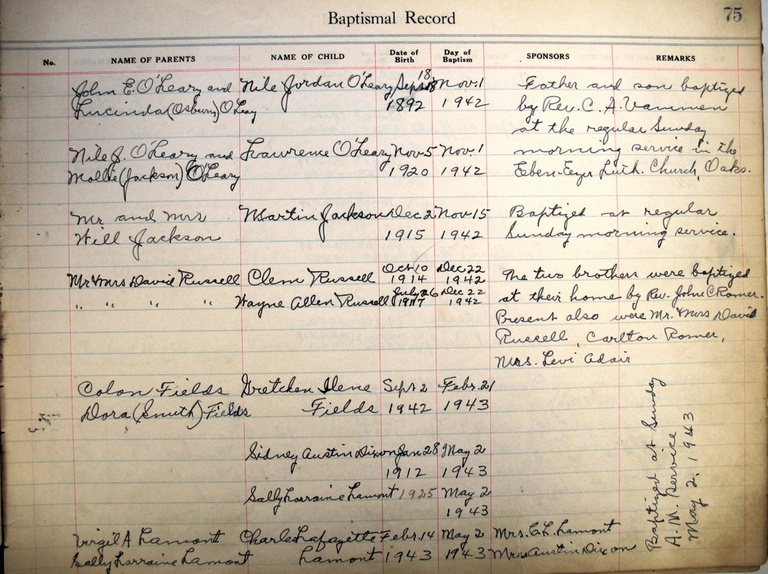 Baptismal Record
75
No. NAME OF PARENTS NAME OF CHILD Date of Birth Day of Baptism SPONSORS REMARKS
John E. O'Leary and Nile Jordan O'Leary Sept 18 Nov. 1 Father and son baptized
Lucinda (Osburn) O'Leary 1892 1942 by Rev. C. A. Vammen
at the regular Sunday
Nile J. O'Leary and Lawrence O'Leary Nov 5 Nov. 1 morning service in the
Mollie (Jackson) O'Leary 1920 1942 Eben-Ezer Luth. Church, Oaks.
Mr and Mrs Martin Jackson Dec 2 Nov 15 Baptized at regular
Will Jackson 1915 1942 Sunday morning service.
Mr & Mrs David Russell Clem Russell Oct 10 1914 Dec 22 1942 The two brothers were baptized
" " " " Wayne Allen Russell July 26 Dec 22 1942 at their home by Rev. John C Romer.
Present also were Mr. & Mrs David
Russell, Carlton Romer,
Mrs. Levi Adair
Colon Fields Gretchen Ilene Sept 2 Febr. 21
Dora (Smith) Fields Fields 1942 1943
Sidney Austin Dixon Jan 28 May 2
1912 1943
Sally Lorraine Lamont 1925 May 2
1943
Virgil A Lamont Charles Lafayette Febr. 14 May 2 Mrs. C. L. Lamont
Sally Lorraine Lamont Lamont 1943 1943 Mrs Austin Dixon
Baptized at Sunday
A. M. Service
May 2, 1943